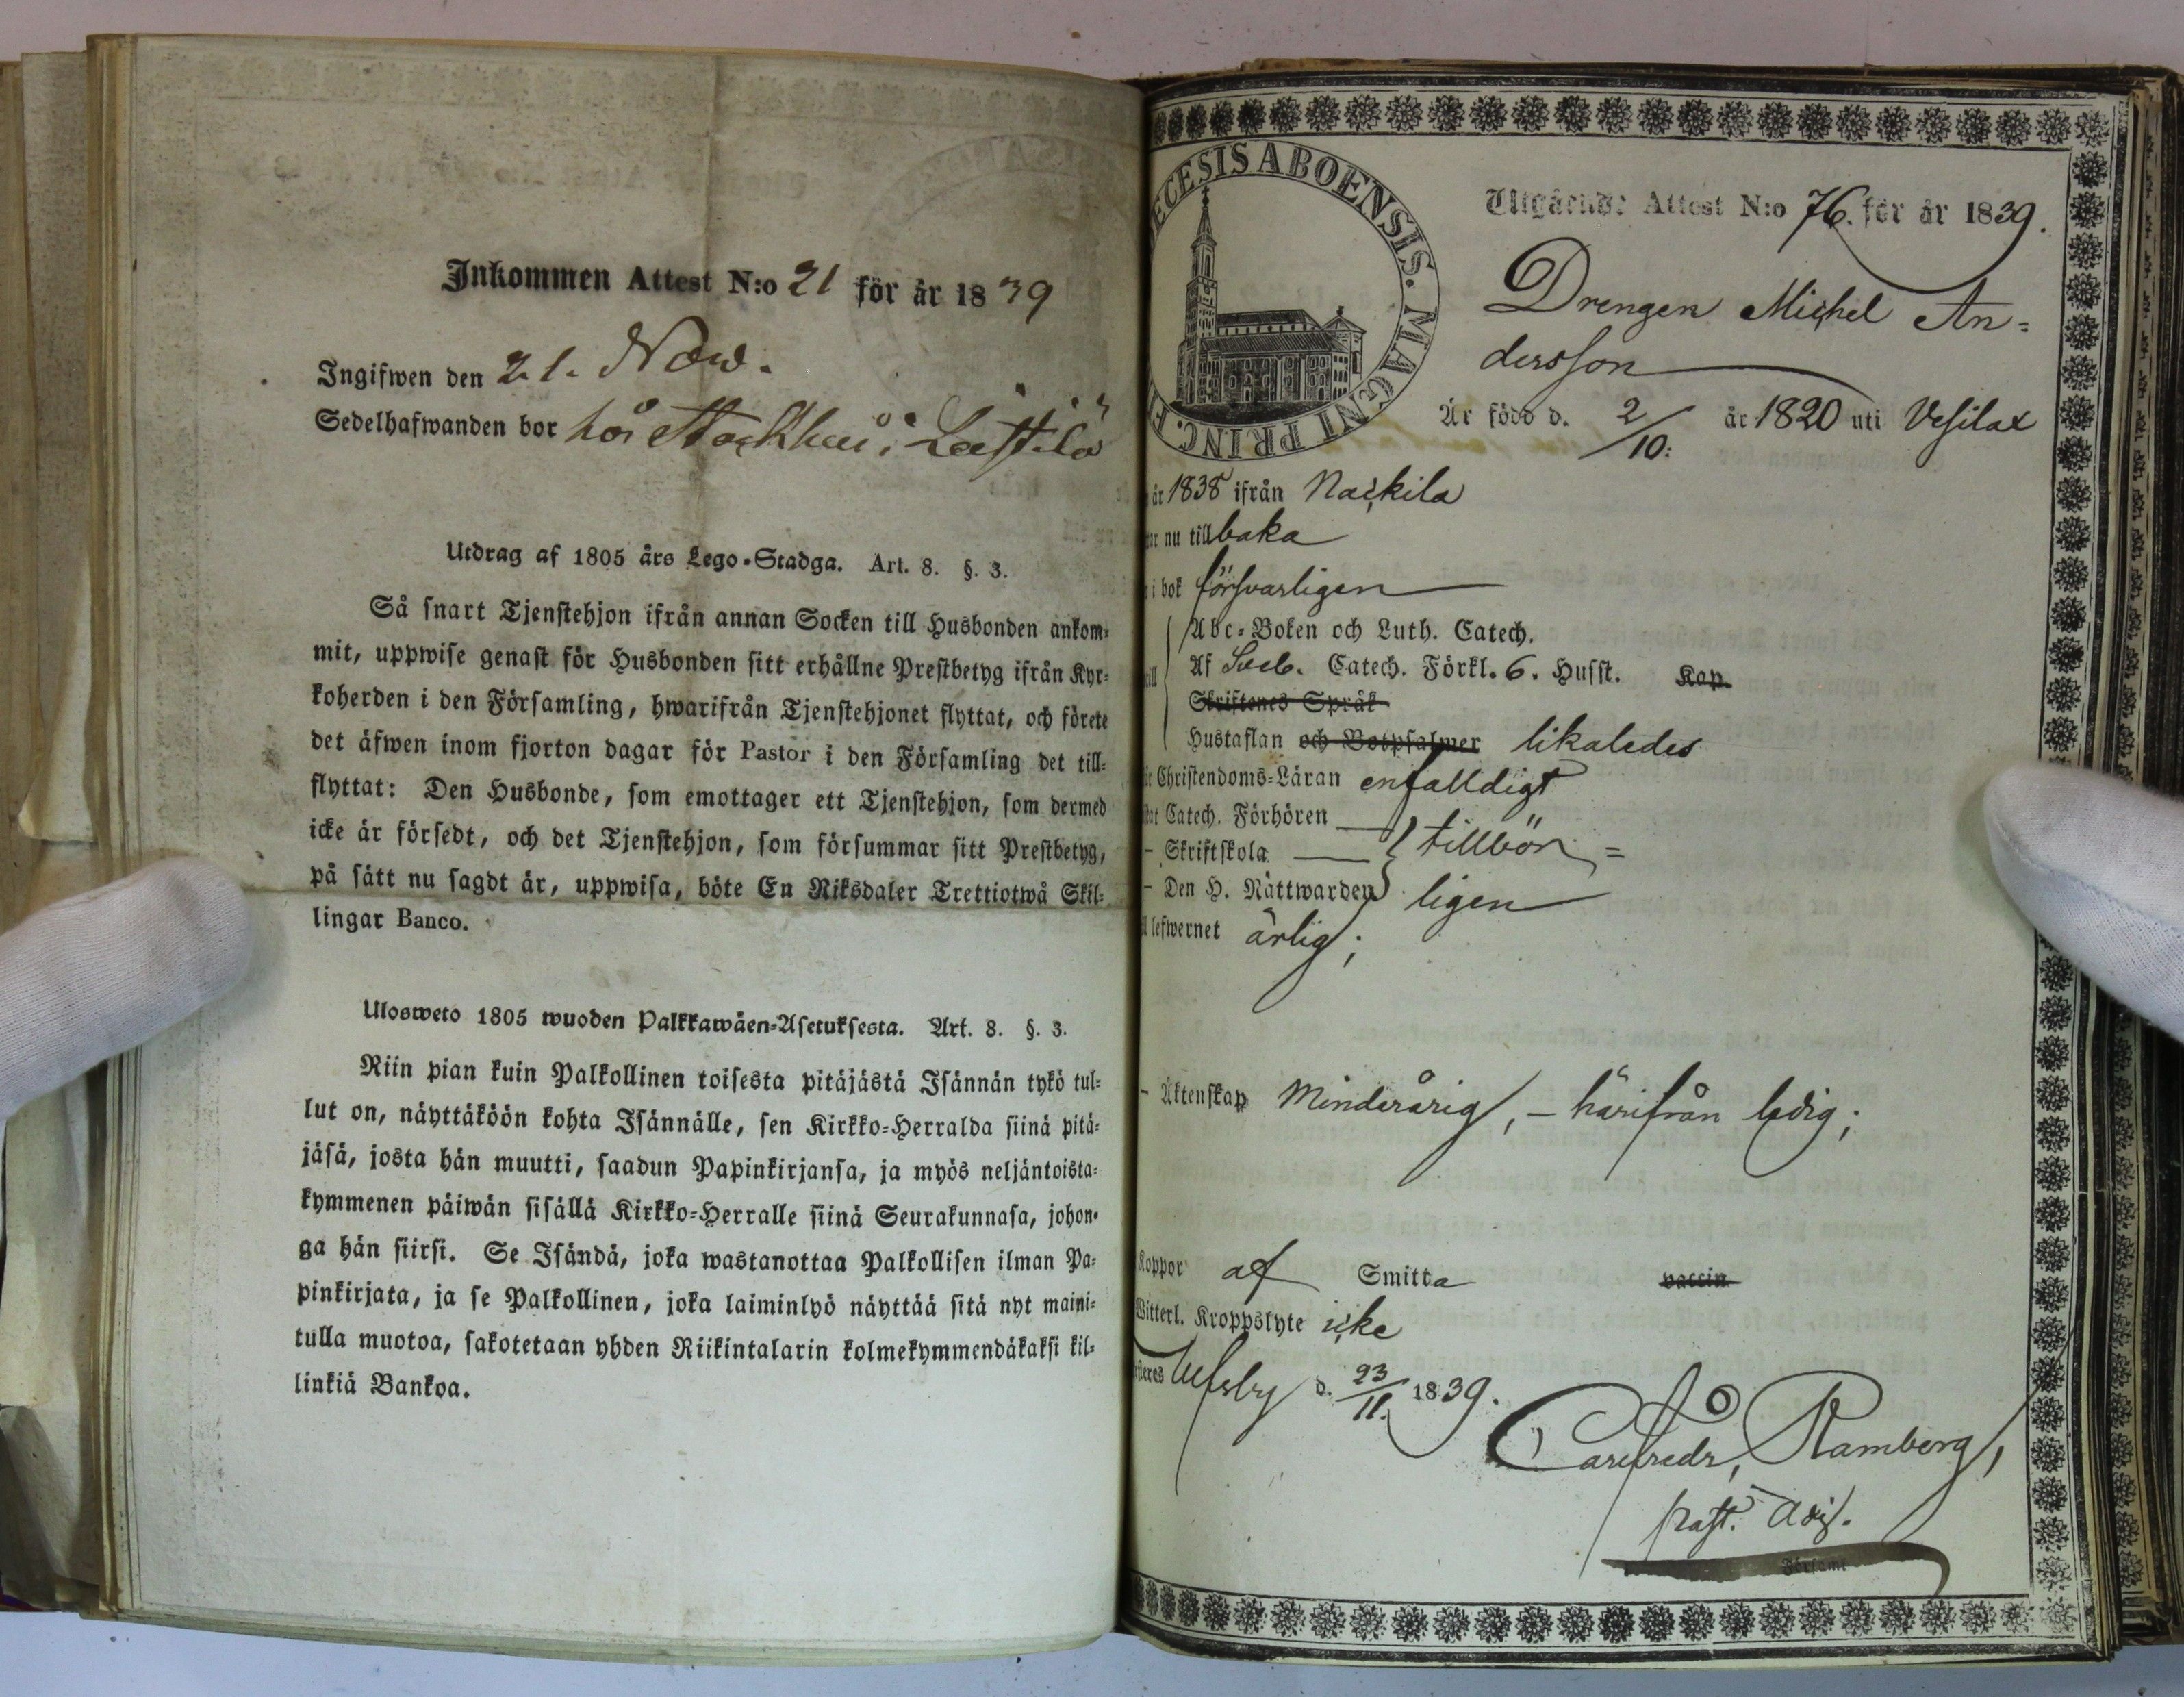 Inkommen Attest N:o 21 för år 1839
Ingifwen den 21. Nov.
Sedelhafwanden bor hos i
Utdrag af 1805 års Lego-Stadga. Art. 8. §. 3.
Så snart Tjenstehjon ifrån annan Socken till Husbonden ankom-
mit, uppwise genast för Husbonden sitt erhållne Prestbetyg ifrån Kyr-
koherden i den Församling, hwarifrån Tjenstehjonet flyttat, och förete
det äfwen inom fjorton dagar för Pastor i den Församling det till-
flyttat: Den Husbonde, som emottager ett Tjenstehjon, som dermed
icke är försedt, och det Tjenstehjon, som försummar sitt Prestbetyg,
på sätt nu sagdt är, uppwisa, böte En Riksdaler Trettiotwå Skil-
lingar Banco.
Ulosweto 1805 wuoden Palkkawäen-Asetuksesta. Art. 8. §. 3.
Niin pian kuin Palkollinen toisesta pitäjästä Isännän tykö tul-
lut on, näyttäköön kohta Isännälle, sen Kirkko-Herralda siinä pitä-
jäsä, josta hän muutti, saadun Papinkirjansa, ja myös neljäntoista-
kymmenen päiwän sisällä Kirkko-Herralle siinä Seurakunnasa, johon-
ga hän siirsi. Se Isändä, joka wastanottaa Palkollisen ilman Pa-
pinkirjata, ja se Palkollinen, joka laiminlyö näyttää sitä nyt maini-
tulla muotoa, sakotetaan yhden Riikintalarin kolmekymmendäkaksi kil-
linkiä Bankoa.
ECESIS ABOENSIS. MAGNI PRINC. F
Utgående Attest N:o 76. för år 1839.
Drengen Michel An=
dersson
Är född d. 2/10: år 1820 uti Vesilax
år 1838 ifrån Nackila
nu tillbaka
i bok försvarligen
Abc-Boken och Luth. Catech.
Af Sveb. Catech. Förkl. 6. Husst. Kap.
Skriftenes Språk
Hustaflan och Botpsalmer likaledes
Christendoms-Läran enfalldigt
Catech. Förhören
- Skriftskola tillbör=
- Den H. Nattwarden ligen
lefwernet ärlig;
- Äktenskap Minderårig, - härifrån ledig;
Koppor af Smitta vaccin
Witterl. Kroppslyte icke
Ulfsby d. 23/11. 1839.
Carl Fredr. Ramberg,
past. adj.
Församl